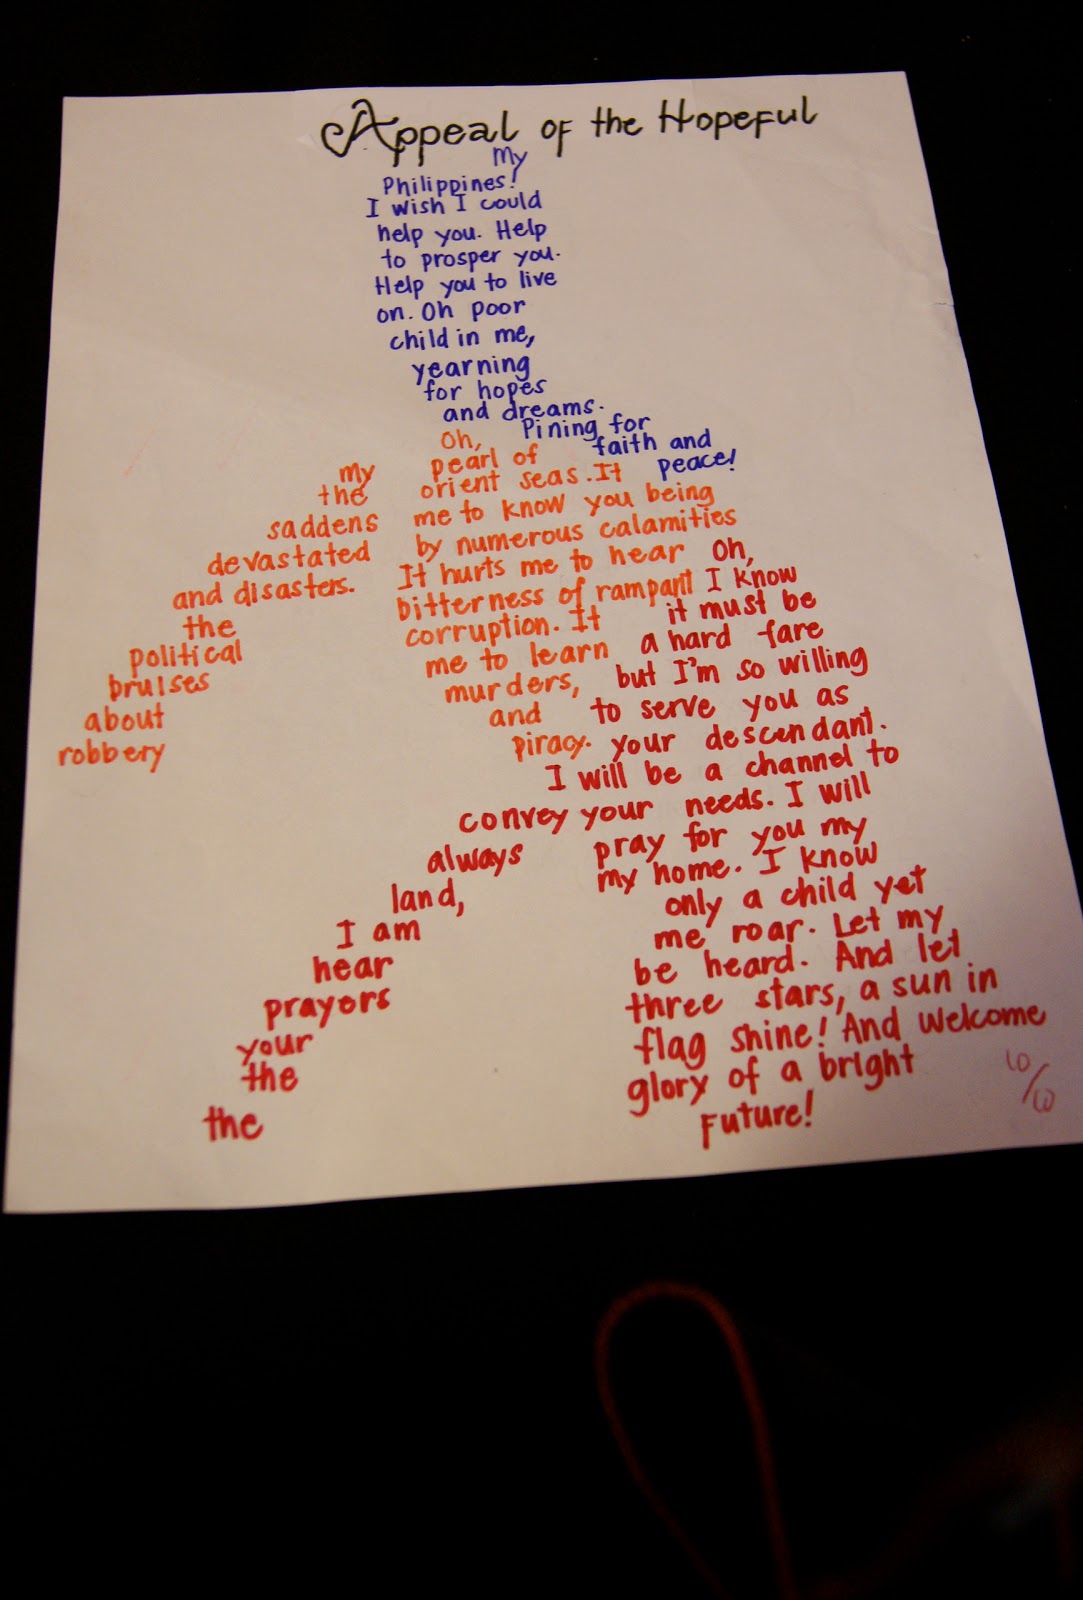 Appeal of the Hopeful
My
Philippines!
I wish I could
help you. Help
to prosper you.
Help you to live
on. Oh poor
child in me,
yearning
for hopes
and dreams.
Pining for
faith and
peace!
Oh,
my pearl of
the orient seas. It
saddens me to know you being
devastated by numerous calamities
and disasters. It hurts me to hear
the bitterness of rampant
political corruption. It
bruises me to learn
about murders,
robbery and
piracy.
Oh,
I know
it must be
a hard fare
but I'm so willing
to serve you as
your descendant.
I will be a channel to
convey your needs. I will
always pray for you my
land, my home. I know
I am only a child yet
hear me roar. Let my
prayers be heard. And let
your three stars, a sun in
the flag shine! And welcome
the glory of a bright
Future!
10/10